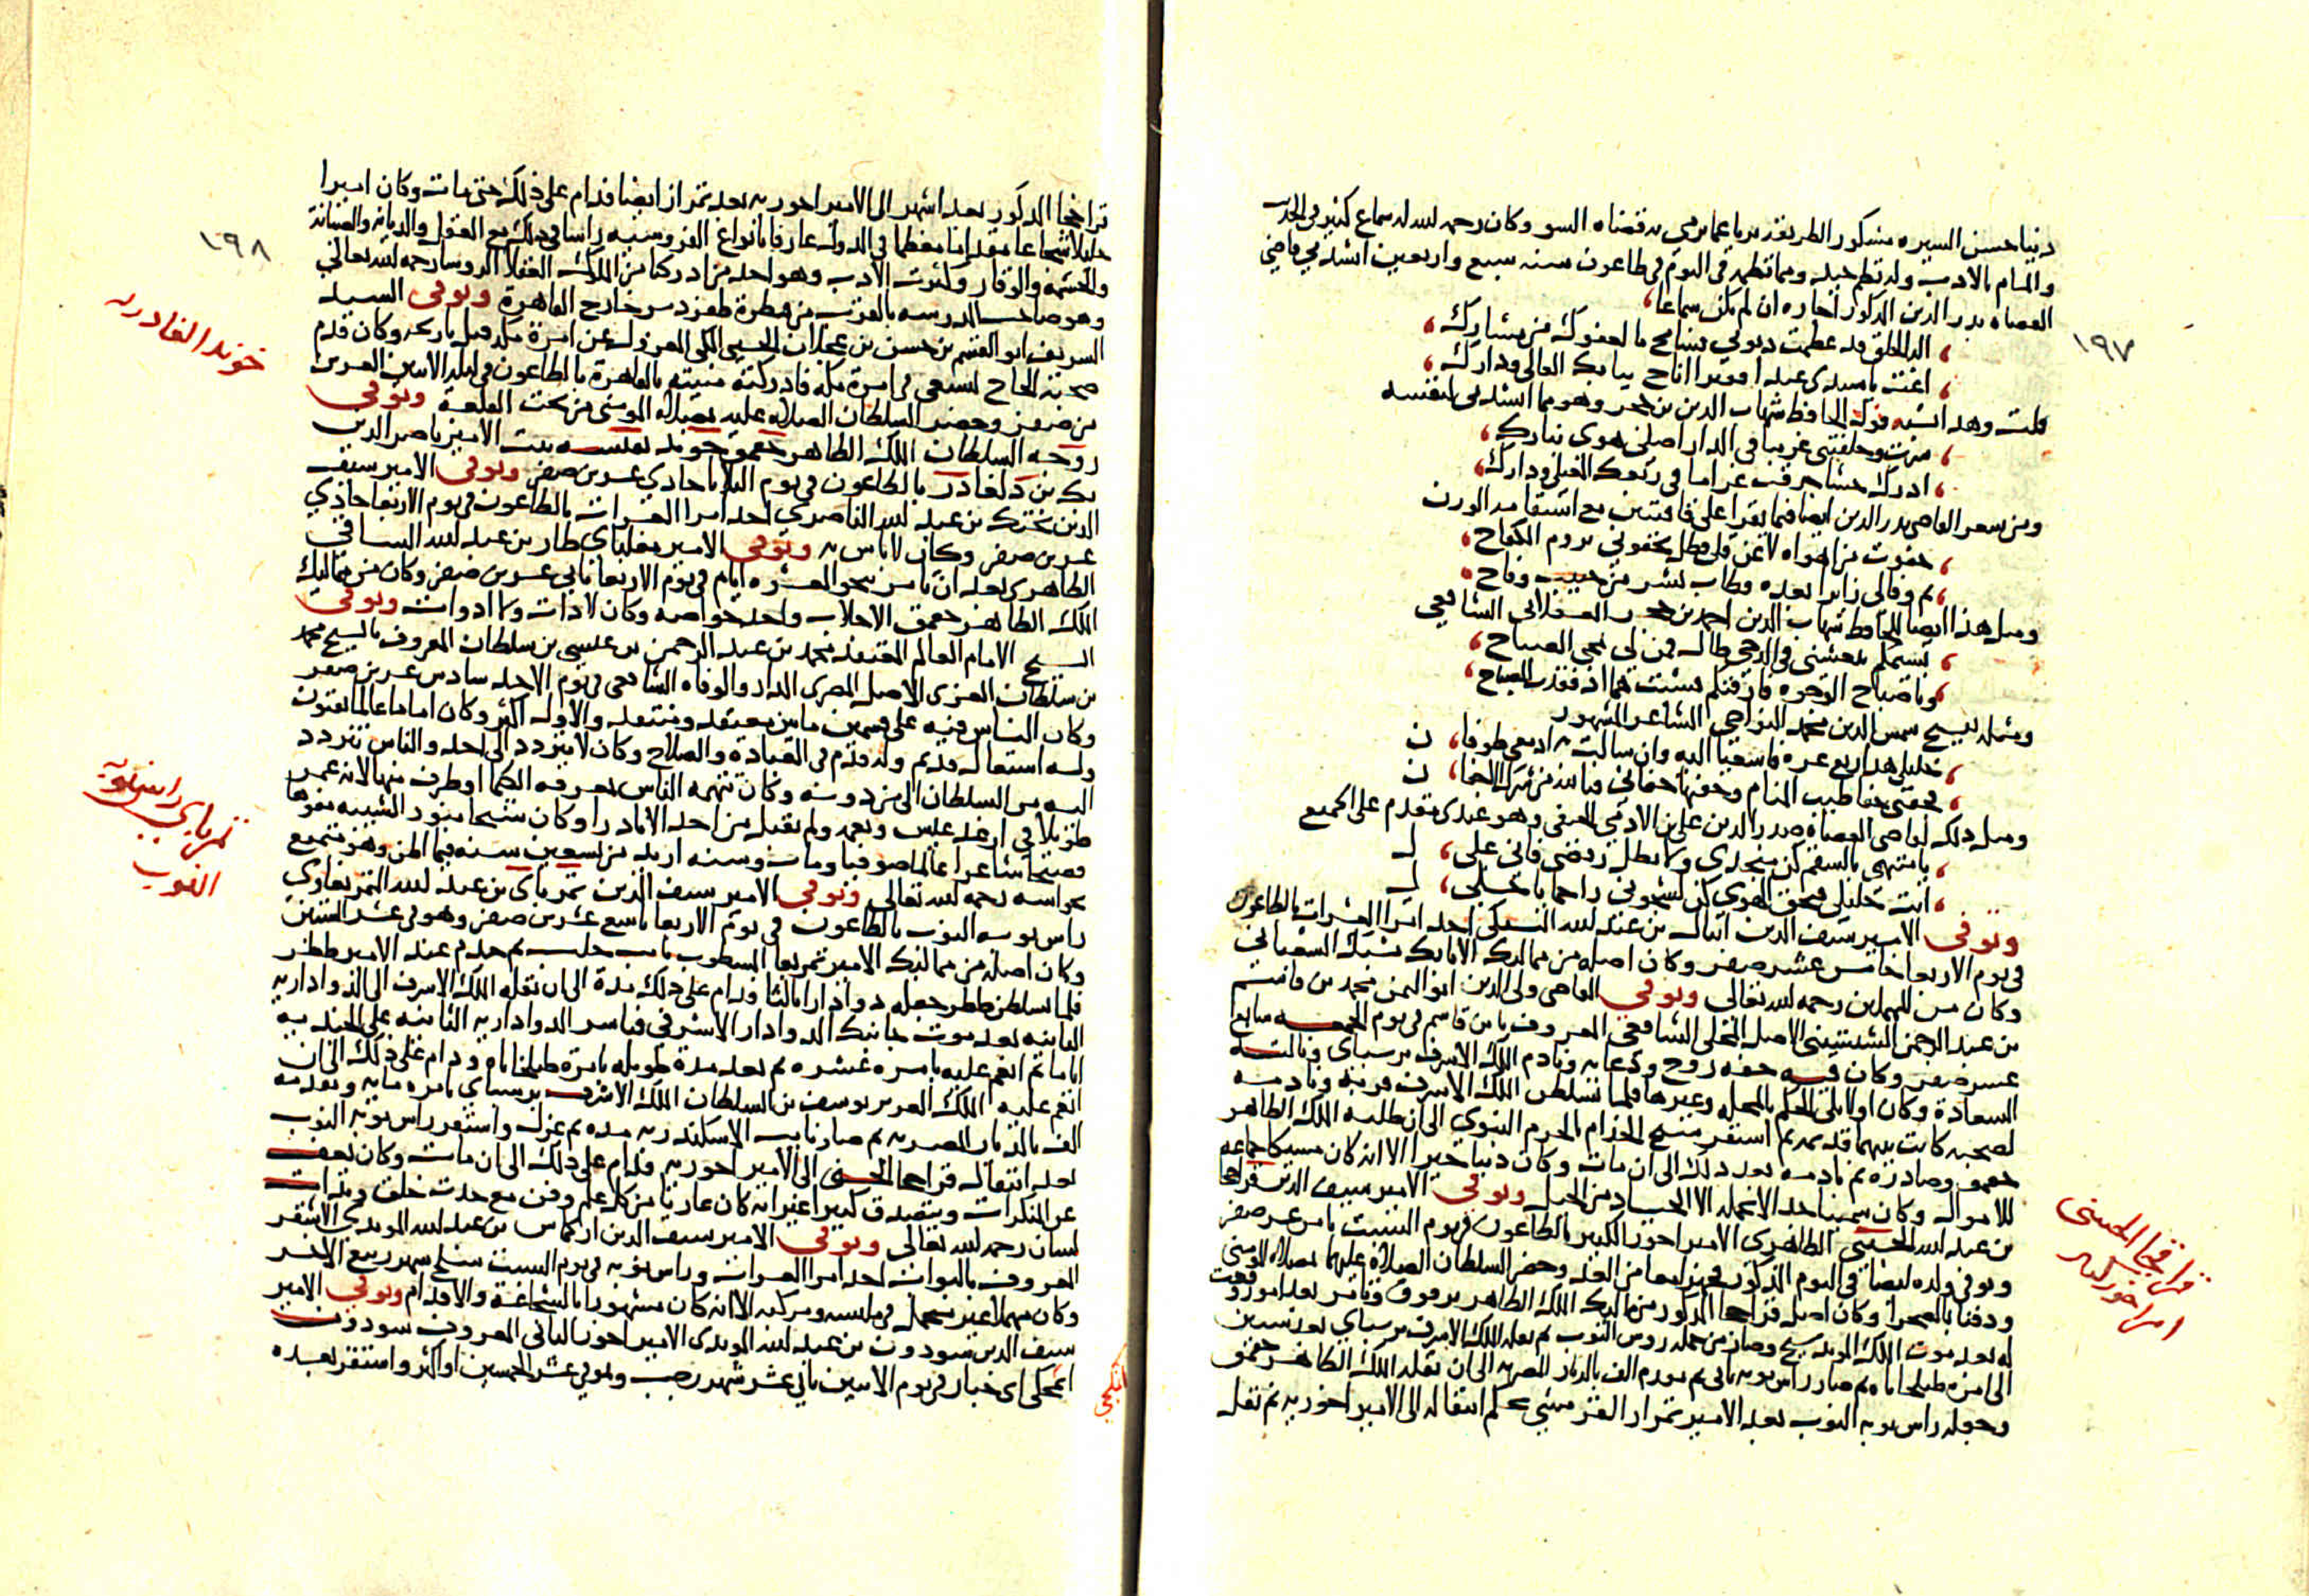 دينا حسن السيره مشكور الطريقه بريا عما يرمى به قضاه السو وكان رحمه الله له سماع كثير في الحديث
والمام بالادب وله نظم جيد ومما نظمه في النوم في طاعون سنه سبع واربعين انشدني قاضي
القضاه بدر الدين المذكور اجازه ان لم يكن سماعا
اله الخلق قد عظمت ذنوبي فسامح ما لعفوك من مشارك
اغث يا سيدي عبدا فقيرا اناخ ببابك العالي ودارك
قلت وهذا يشبه قول الحافظ شهاب الدين بن حجر وهو مما انشدني لنفسه
سرت وخلفتني غريبا في الدار اصلي هوى بنارك
ادرك حشا حرقت غراما في ربعك المعتلى ودارك
ومن شعر القاضي بدر الدين ايضا فيما يقرا على قافيتين مع استقامه الوزن
جفوت من اهواه لا عن قلى فظل يجفوني يروم الكفاح
ثم وفا لي زايرا بعده فطاب نشر من حبيب وفاح
ومثل هذا ايضا للحافظ شهاب الدين احمد بن حجر العسقلاني الشافعي
نسيمكم ينعشني في الدجى طال فمن لي بمجي الصباح
ويا صباح الوجوه فارقتكم فشبت هما اذ فقدت الصباح
ومثله للشيخ شمس الدين محمد النواجي الشاعر المشهور
خليلي هذا ربع عزة فاسعيا اليه وان سالت به ادمعي طوفان
فجفني جفا طيب المنام وجفنها جفاني فيا لله من شرك الاجفان
ومثل ذلك لقاضي القضاه صدر الدين علي بن الادمي الحنفي وهو عندي مقدم على الجميع
يا متهمي بالسقم كن منجدي ولا تطل رفضي فاني عليل
انت خليلي فبحق الهوى كن لشجوني راحما يا خليل
وتوفي الامير سيف الدين اينال بن عبد الله اليشبكي احد امرا العشرات بالطاعون
في يوم الاربعا خامس عشر صفر وكان اصله من مماليك الاتابك يشبك الشعباني
وكان من المهملين رحمه الله تعالى وتوفي القاضي ولي الدين ابو اليمن محمد بن قاسم
بن عبد الرحمن الشيشيني الاصل المحلي الشافعي المعروف بابن قاسم في يوم الجمعه سابع
عشر صفر وكان فيه خفه روح ودعابه ونادم الملك الاشرف برسباي ونالته
السعادة وكان اولا يلي الحكم بالمحله وغيرها فلما تسلطن الملك الاشرف قربه ونادمه
لصحبه كانت بينهما قديمه ثم استقر شيخ الخدام بالحرم النبوي الى ان طلبه الملك الظاهر
جقمق وصادره ثم نادمه بعد ذلك الى ان مات وكان دينا خيرا الا انه كان مسيكا جماعه
للاموال وكان سمينا جدا لا تحمله الا الجياد من الخيل وتوفي الامير سيف الدين قراقجا
بن عبد الله الحسني الظاهري الامير اخور الكبير بالطاعون في يوم السبت ثامن عشر صفر
وتوفي ولده ايضا في اليوم المذكور فجهزا معا من الغد وحضر السلطان الصلاة عليهما بمصلاة المومني
ودفنا بالصحرا وكان اصل قراقجا المذكور من مماليك الملك الظاهر برقوق وتامر بعد امور وقعت
له بعد موت الملك المويد شيخ وصار من جمله رووس النوب ثم نقله الملك الاشرف برسباي بعد سنين
الى امره طبلخاناه ثم صار راس نوبه ثاني ثم مقدم الف بالديار المصريه الى ان نقله الملك الظاهر جقمق
وجعله راس نوبه النوب بعد الامير تمراز القرمشي بحكم انتقاله الى الامير اخوريه ثم نقل
١٩٧
قراقجا الحسني
امير اخور كبير
قراقجا المذكور بعد اشهر الى الامير اخوريه بعد تمراز ايضا فدام على ذلك حتى مات وكان اميرا
جليلا شجاعا مقداما معظما في الدوله عارفا بانواع الفروسيه راسا في ذلك مع العقل والديانه والصيانة
والحشمه والوقار وكثرت الادب وهو احد من ادركنا من الملوك العقلا الروسا رحمه الله تعالى
وهو صاحب المدرسه بالقرب من قنطرة طقزدمر خارج القاهرة وتوفي السيد
الشريف ابو القسم بن حسن بن عجلان الحسني المكي المعزول عن امرة مكه قبل تاريخه وكان قدم
صحبة الحاج ليسعى في امرة مكه فادركته منيته بالقاهرة بالطاعون في ليله الاثنين العشرين
من صفر وحضر السلطان الصلاه عليه بمصلاه المومني من تحت القلعة وتوفي
زوجه السلطان الملك الظاهر جقمق خوند نفيسه بنت الامير ناصر الدين
بك بن دلغادر بالطاعون في يوم الثلاثا حادي عشرين صفر وتوفي الامير سيف
الدين بختك بن عبد الله الناصري احد امرا العشرات بالطاعون في يوم الاربعا حادي
عشرين صفر وكان لا باس به وتوفي الامير مغلباي طاز بن عبد الله الساقي
الظاهري بعد ان تامر نحو العشره ايام في يوم الاربعا ثاني عشرين صفر وكان من مماليك
الملك الظاهر جقمق الاجلاب واحد خواصه وكان لا ذات ولا ادوات وتوفي
الشيخ الامام العالم المعتقد محمد بن عبد الرحمن بن عيسى بن سلطان المعروف بالشيخ محمد
بن سلطان الغزي الاصل المصري الدار والوفاه الشافعي في يوم الاحد سادس عشرين صفر
وكان الناس فيه على قسمين ما بين معتقد ومنتقد والاول اكثر وكان اماما عالما بفنون
وله استغال قديم وله قدم في العبادة والصلاح وكان لا يتردد الى احد والناس تتردد
اليه من السلطان الى من دونه وكان تتهمه الناس بمعرفه الكيميا او طرف منها لانه عمر
طويلا في ارغد عيش ونعمه ولم يقبل من احد الا نادرا وكان شيخا منور الشيبه مفوها
فصيحا شاعرا عالما صوفيا ومات وسنه ازيد من تسعين سنه فيما اظن وهو متمتع
بحواسه رحمه الله تعالى وتوفي الامير سيف الدين تمرباي بن عبد الله التمربغاوي
راس نوبه النوب بالطاعون في يوم الاربعا تاسع عشرين صفر وهو في عشر الستين
وكان اصله من مماليك الامير تمربغا المشطوب نايب حلب ثم خدم عند الامير ططر
فلما تسلطن ططر جعله دوادارا ثالثا ودام على ذلك مدة الى ان نقله الملك الاشرف الى الدوادارية
الثانيه بعد موت جانبك الدوادار الاشرفي فباشر الدواداريه الثانيه على الجنديه
اياما ثم انعم عليه بامره عشره ثم بعد مدة طويله بامرة طبلخاناه ودام على ذلك الى ان
انعم عليه الملك العزيز يوسف بن السلطان الملك الاشرف برسباي بامره مايه وتقدمه
الف بالديار المصريه ثم صار نايب الاسكندريه مده ثم عزل واستقر راس نوبه النوب
بعد انتقال قراقجا الحسني الى الامير اخوريه فدام على ذلك الى ان مات وكان يعف
عن المنكرات ويتصدق كثيرا غير انه كان عاريا من كل علم وفن مع حدت خلق وبذات
لسان رحمه الله تعالى وتوفي الامير سيف الدين اركماس بن عبد الله المويدي الاشقر
المعروف بالبواب احد امرا العشرات وراس نوبه في يوم السبت سلخ شهر ربيع الاخر
وكان مهملا غير متجمل في ملبسه ومركبه الا انه كان مشهورا بالشجاعة والاقدام وتوفي الامير
سيف الدين سودون بن عبد الله المويدي الامير اخور الثاني المعروف سودون
اتمكجي اي خباز في يوم الاثنين ثاني عشر شهر رجب وهو في عشر الخمسين او اكثر واستقر بعده
١٩٨
خوند الغادريه
تمرباي راس نوبه
النوب